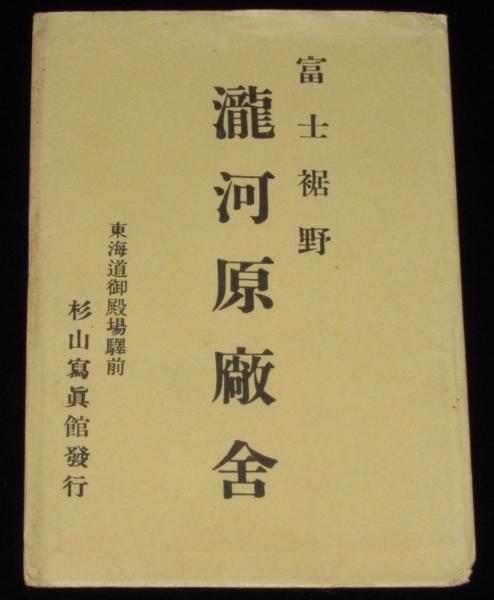 富士裾野
瀧河原廠舎
東海道御殿場驛前
杉山寫眞館發行